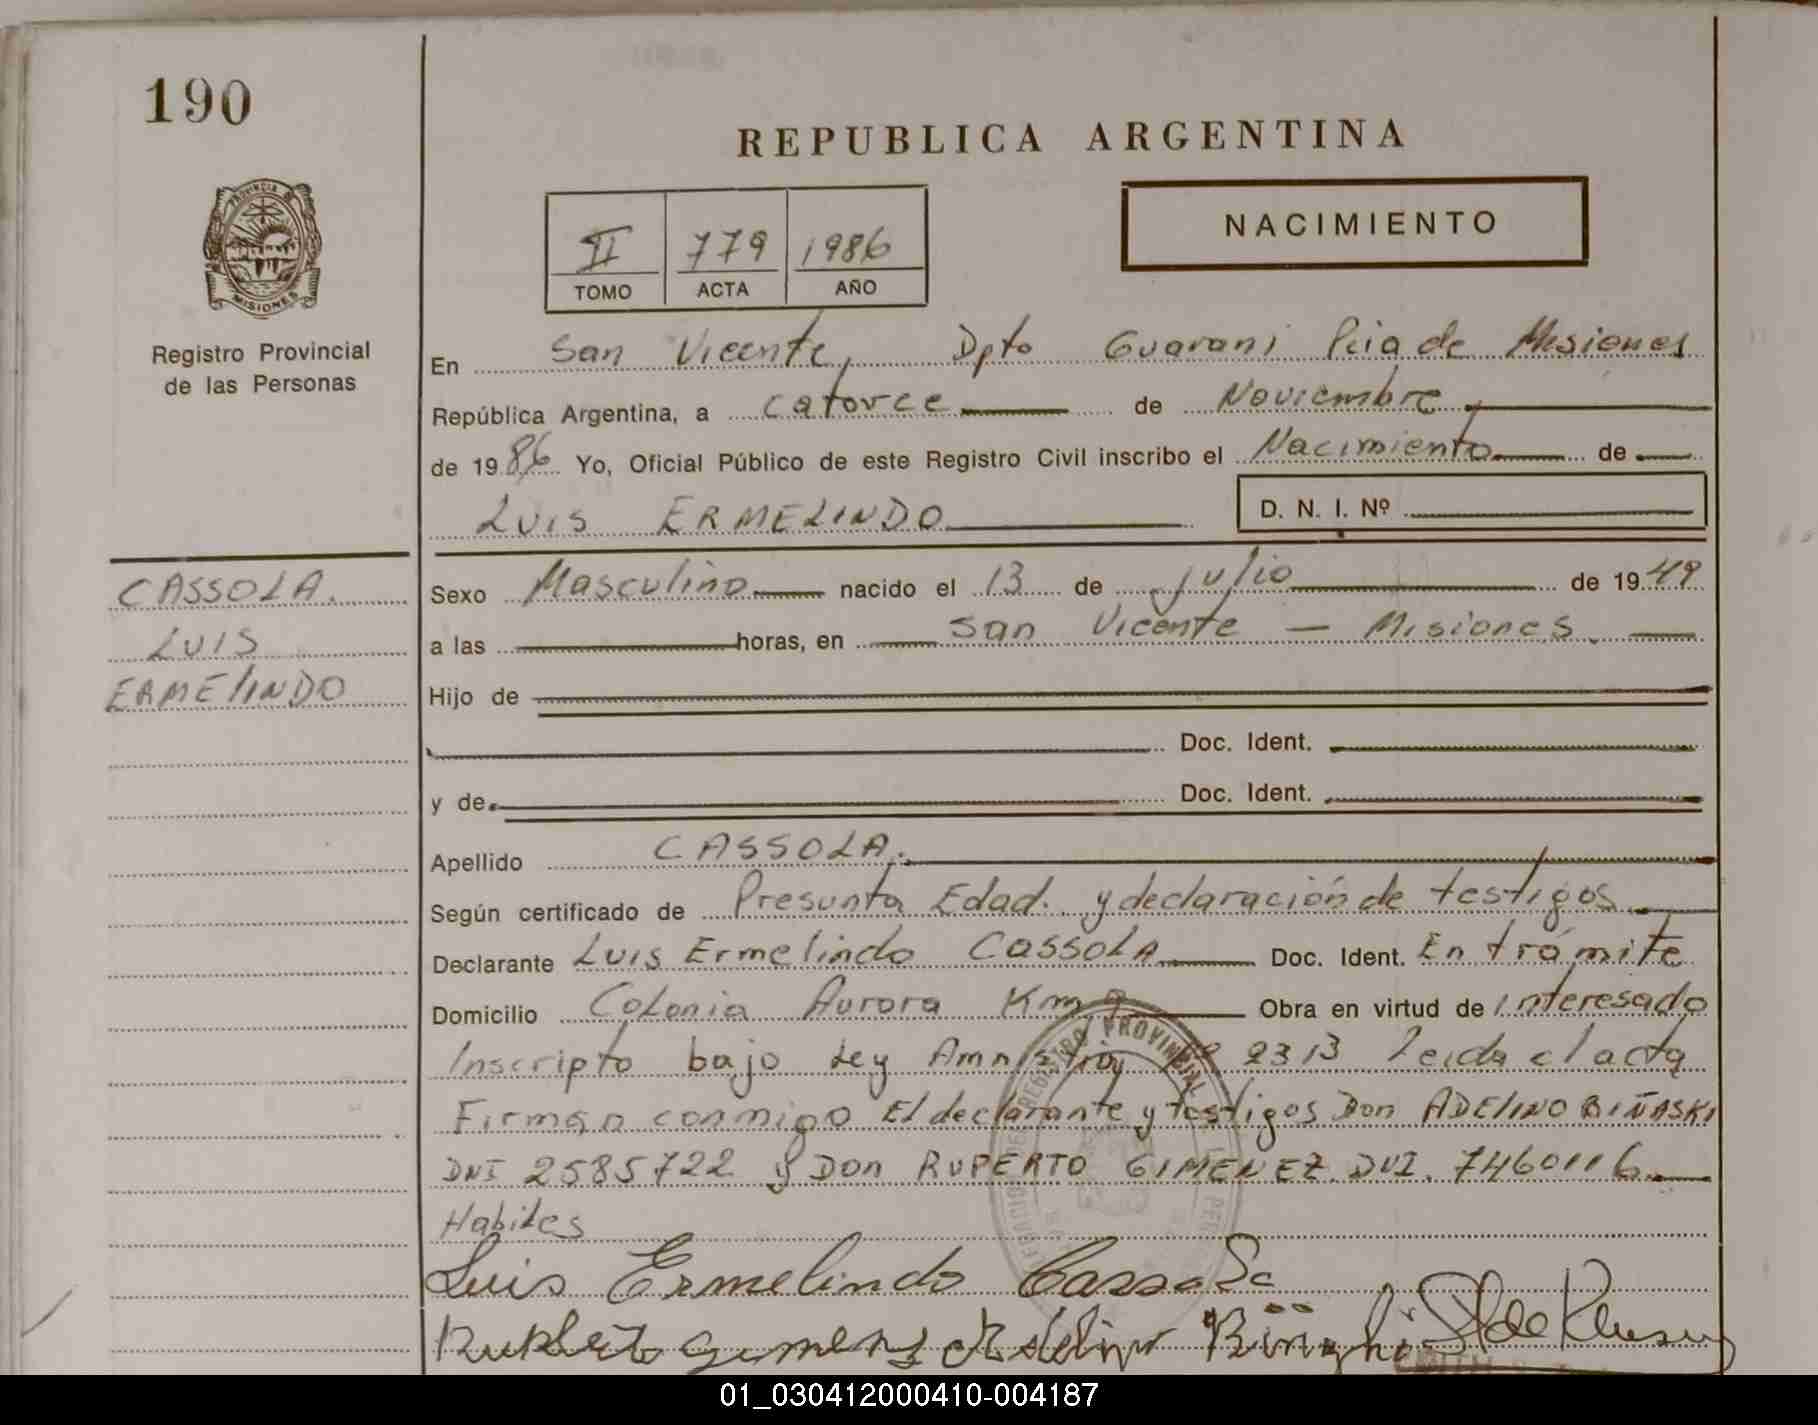 190
REPUBLICA ARGENTINA
NACIMIENTO
II 779 1986
TOMO ACTA AÑO
PROVINCIA DE
MISIONES
Registro Provincial
de las Personas
En San Vicente, Dpto Guarani Pcia de Misiones
República Argentina, a catorce de Noviembre
de 1986 Yo, Oficial Público de este Registro Civil inscribo el Nacimiento de
LUIS ERMELINDO D. N. I. Nº
CASSOLA.
LUIS
ERMELINDO
Sexo Masculino nacido el 13 de julio de 1949
a las horas, en San Vicente - Misiones.
Hijo de
Doc. Ident.
y de Doc. Ident.
Apellido CASSOLA.
Según certificado de Presunta Edad. y declaración de testigos
Declarante Luis Ermelindo CASSOLA Doc. Ident. En trámite
Domicilio Colonia Aurora Km 9 Obra en virtud de interesado
Inscripto bajo Ley Amnistia 2313 leida el acta
Firman conmigo El declarante y testigos Don ADELINO BIÑASKI
DNI 2585722 y Don RUPERTO GIMENEZ. DNI. 7460116
Habiles
REGISTRO PROVINCIAL
Luis Ermelindo Cassola
01_030412000410-004187